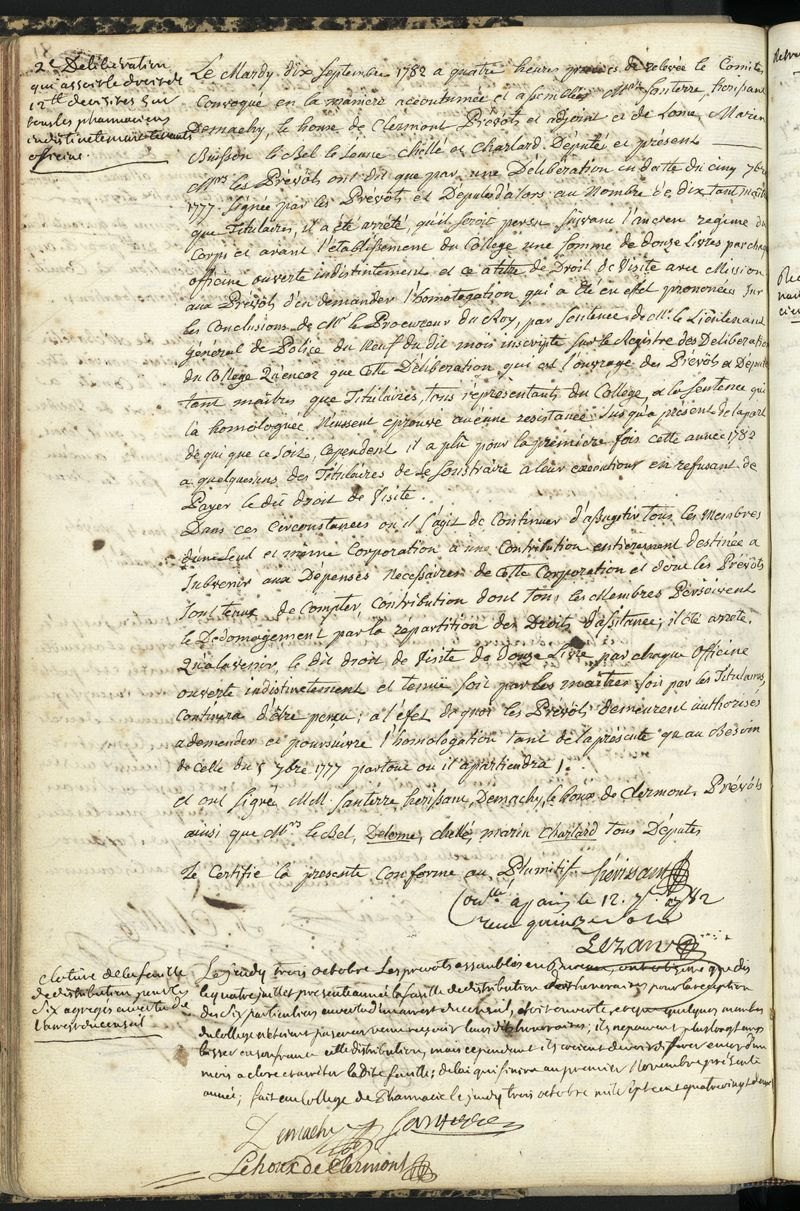 2e Deliberation
qui asseoit le droit de
12 tt de visites sur
tous les pharmaciens
indistinctement tenants
officine.
Le Mardy dix Septembre 1782 a quatre heures precises de relevée le Comité
Convoqué en la maniere accoutumée et assemblés Mrs Santerre, herissant
Demachy, le houx de Clermont Prévôts et adjoint et de Lome, Marin
Buisson le Bel le Jeune Chellé et Charlard Députés et présent
Mrs les Prévôts ont dit que par une Délibération en datte du cinq 7bre
1777 signée par les Prévôts et Députés d'alors au Nombre de dix tant maitres
que Titulaires, il a été arrété, qu'il seroit persu suivant l'ancien regime du
Corps et avant l'établissement du College une somme de douze Livres par chaque
officine ouverte indistintement et ce a titre de Droit de Visite avec Mission
aux Prévôts d'en demander l'homologation qui a été en efet prononcée sur
les Conclusions de Mr le Procureur du Roy, par Sentence de Mr le Lieutenant
général de Police du Neuf du dit mois inscripte sur le Registre des Deliberations
du College Qu'encor que cette Délibération qui est l'ouvrage des Prévôts et Députés
tant maitres que Titulaires, tous représentants du College, et la Sentence qui
la homologuée Neussent eprouvé aucune resistance jusqu'a présent de la part
de qui que ce soit, cependent il a plu pour la premiere fois cette année 1782
a quelquesuns des Titulaires de se soustraire a leur exécutions en refusant de
Payer le dit droit de Visite.
Dans ces circonstances ou il s'agit de Continuer d'assugetir tous les Membres
d'une seul et même Corporation a une Contribution entierement destinée a
subvenir aux Dépenses Necessaires de cette Corporation et dont les Prévôts
sont tenus de Compter, Contribution dont tous les Membres Persoivent
le Dedomagement par la répartition des Droits d'assistance, il été arrete,
Qualavenir, le dit droit de Visite de Douze Livre par chaque Officine
ouverte indistinctement et tenuë soit par les maitres soit par les Titulaires,
Continura d'être perçu; a l'éfet de quoi les Prévôts demeurent authorisés
a demander et poursuivre l'homologation tant de la présente qu au Besoin
de celle du 5 7bre 1777 partout ou il apartiendra /.
et ont signé MM. Santerre, herissant, Demachy, le houx de Clermont, Prévôts
ainsi que Mrs le Bel, Delome, chellé, marin Charlard tous Députés
Je Certifie la presente Conforme au Plumitif herissant
Conllé à paris le 12. 7bre 1782
reçu quinze sols
Lezan
Cloture de la feuille
de distribution pour les
Six agregés en vertu de
l'arrest du conseil
Le jeudy trois octobre Les prevots assemblés en Bureau, ont observé que dès
le quatre juillet presente année la feuille de distribution des honoraires pour la reception
des Six particuliers en vertu d'un arrest du conseil, etoit ouverte, et que quelques membres
du college n'etoient pas encor venu recevoir leurs dits honoraires; ils ne peuvent plus longtems
laisser en souffrance cette distribution, mais cependant ils croient devoir differer encor d'un
mois a clore et arrêter la dite feuille; delai qui finira au premier Novembre présente
année; fait au College de Pharmacie le jeudy trois octobre mil sept cent quatre vingt deux
Demachy Santerre
Lehoux de Clermont